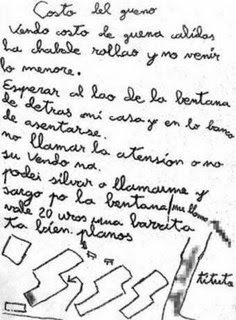 Costo del gueno
Vendo costo de guena calidas
ha chabale rollao y no venir
lo menore.
Esperar al lao de la bentana
de detras mi casa y en lo banco
de asentarse.
no llamar la atension o no
su vendo na.
podei silvar o llamarme y
sargo po la bentana mu llamo
vale 20 uros una barrita
ta bien planos
tituta